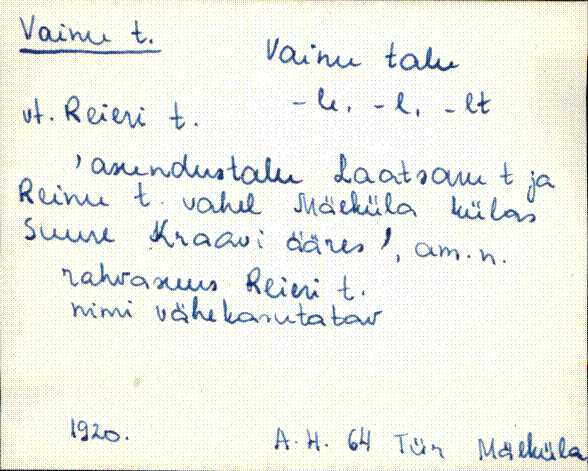 Vainu t.
Vainu talu
-le, -l, -lt
vt. Reieri t.
'asundustalu Laatsanu t ja
Reinu t. vahel Mäeküla külas
Suure Kraavi ääres', am.n.
rahvasuus Reieri t.
nimi vähekasutatav
1920.
A.H. 64 Tür Mäeküla